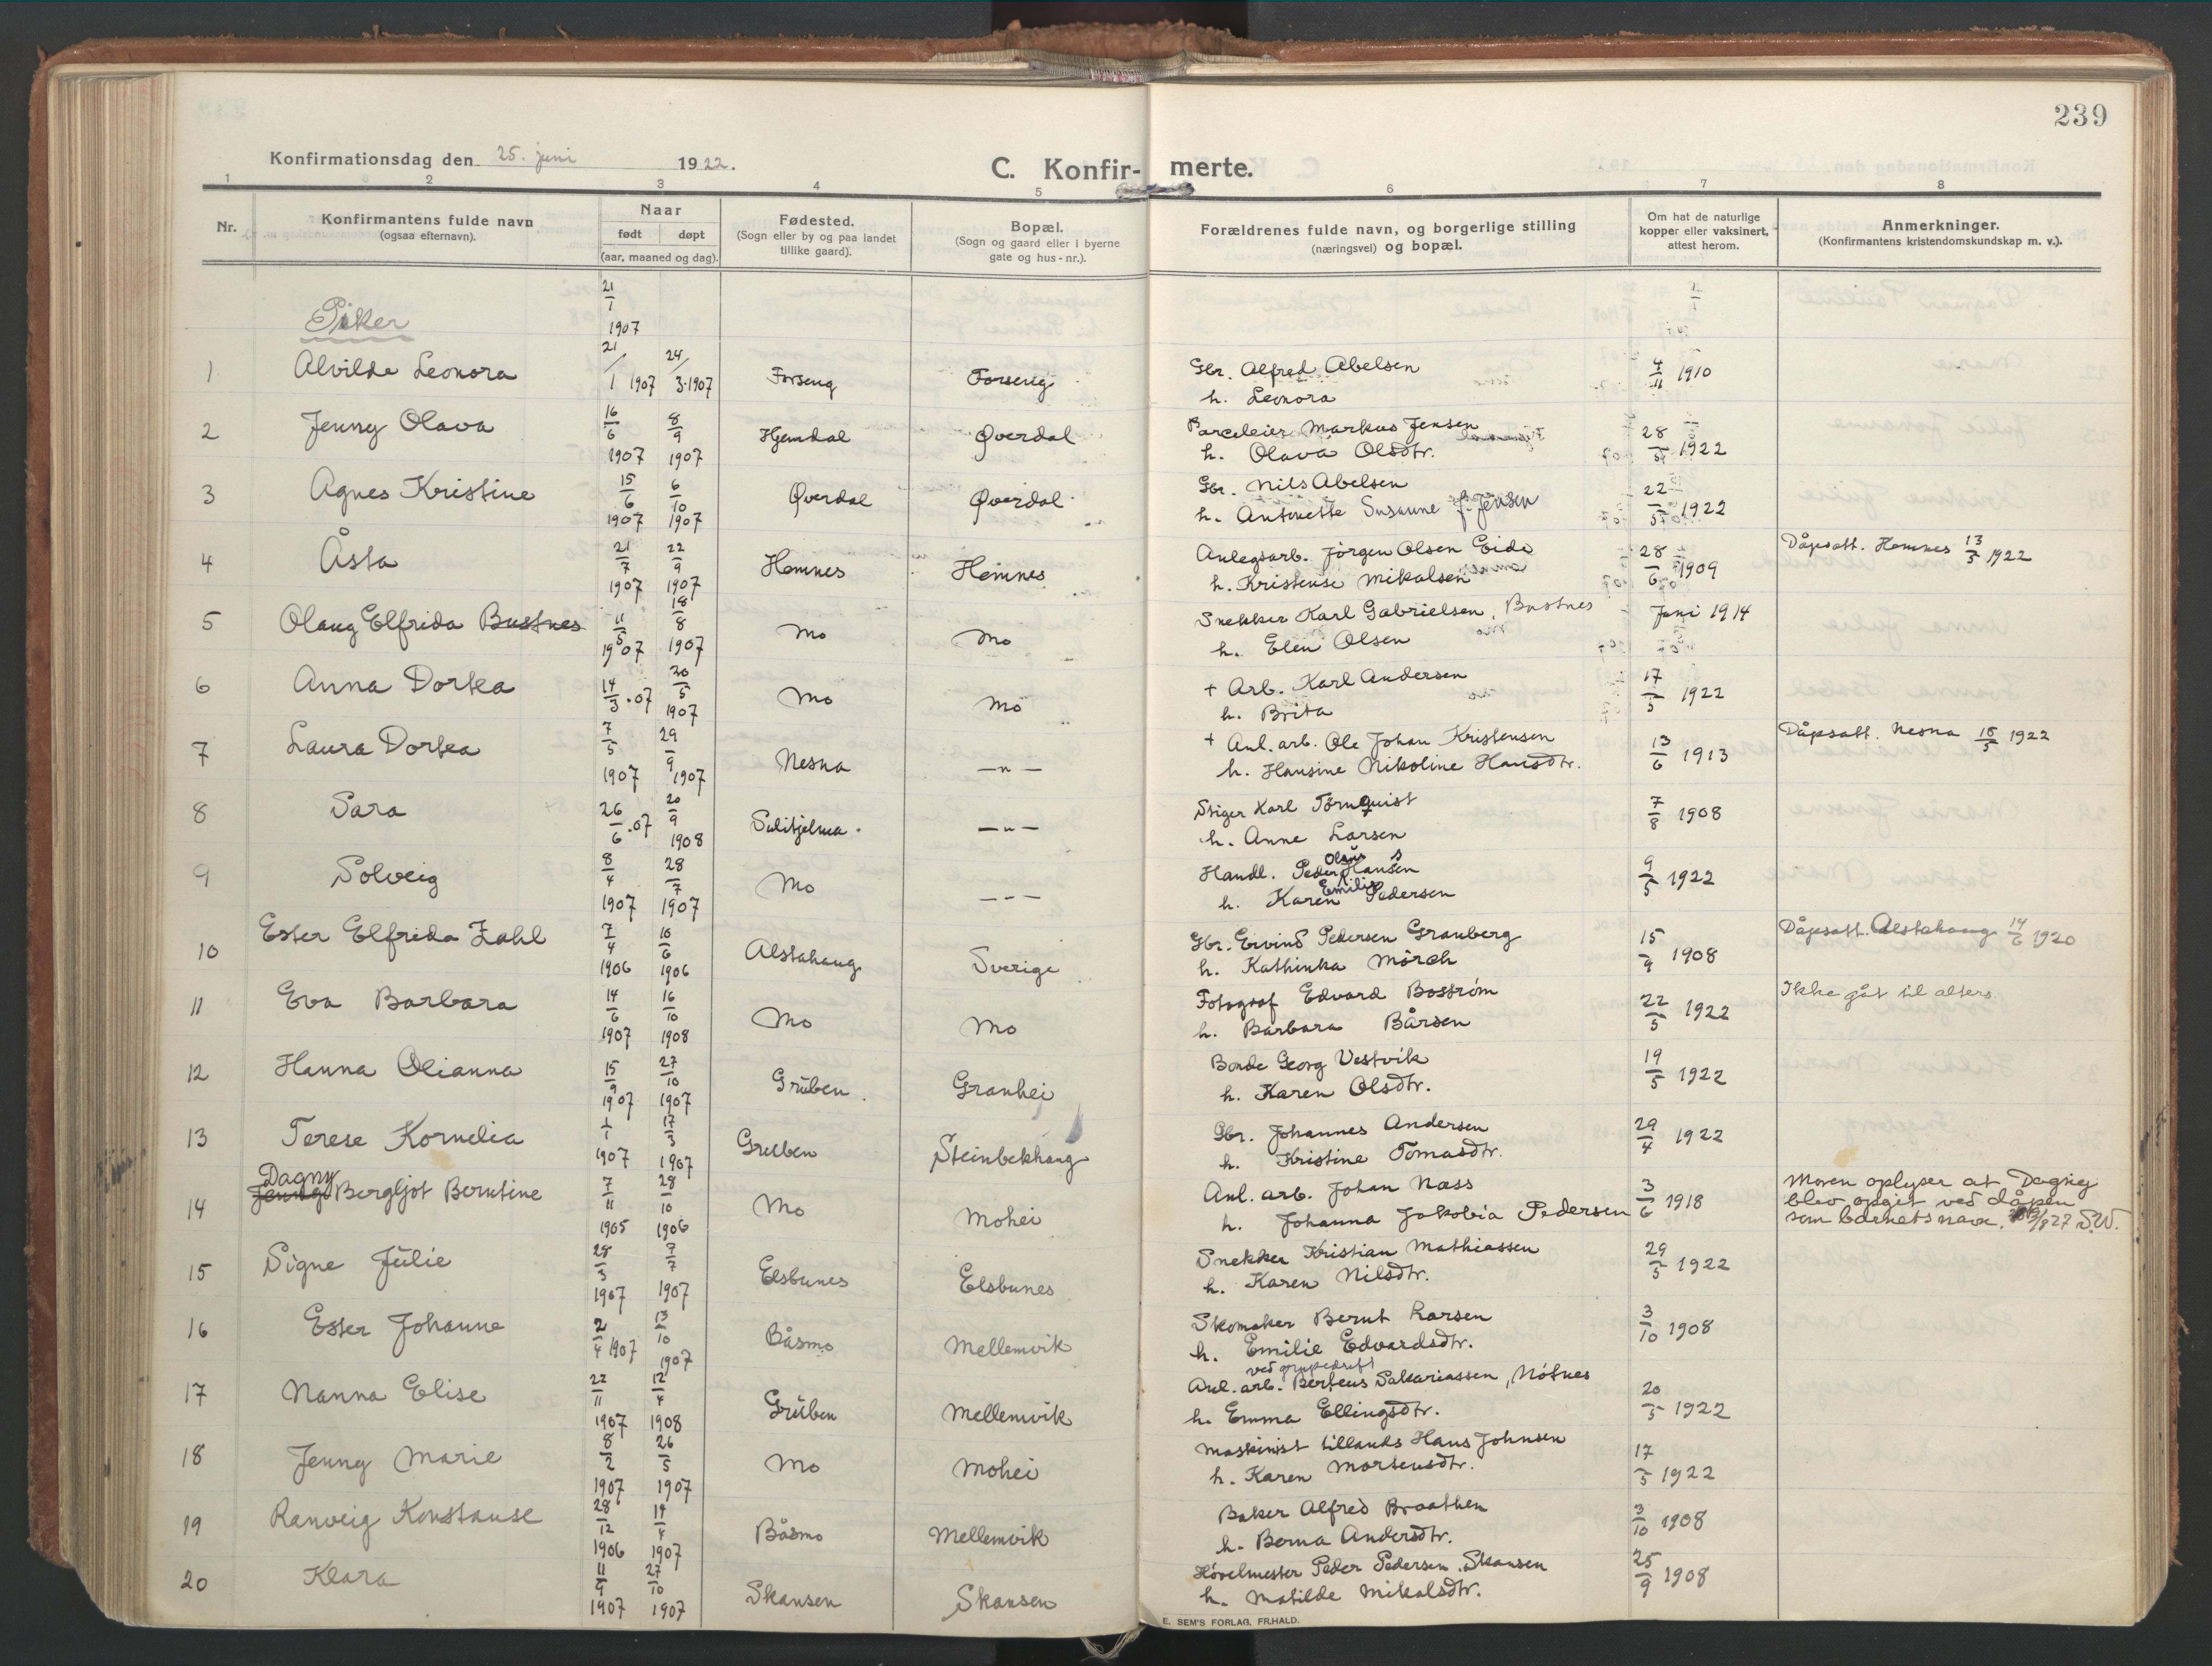 239
Konfirmationsdag den 25. juni 1922.
C. Konfir- merte.
1 2 3 4 5 6 7 8
Nr.
Konfirmantens fulde navn
(ogsaa efternavn).
Naar
født døpt
(aar, maaned og dag).
Fødested.
(Sogn eller by og paa landet
tillike gaard).
Bopæl.
(Sogn og gaard eller i byerne
gate og hus-nr.).
Forældrenes fulde navn, og borgerlige stilling
(næringsvei) og bopæl.
Om hat de naturlige
kopper eller vaksinert,
attest herom.
Anmerkninger.
(Konfirmantens kristendomskundskap m. v.).
Piker
21/1 1907
1 Alvilde Leonora 21/1 1907 24/3 1907 Forseng Forseng Gbr. Alfred Abelsen 4/11 1910
h. Leonora
2 Jenny Olava 16/6 1907 8/9 1907 Hjemdal Øverdal Parceleier Markus Jensen 28/5 1922
h. Olava Olsdtr.
3 Agnes Kristine 15/6 1907 6/10 1907 Øverdal Øverdal Gbr. Nils Abelsen 22/5 1922
h. Antonette Susanne f. Jensen
4 Åsta 21/7 1907 22/9 1907 Hemnes Hemnes Anlegsarb. Jörgen Olsen Eide 28/6 1909 Dåpsatt. Hemnes 13/5 1922
h. Kristense Mikalsen
5 Olaug Elfrida Bustnes 11/5 1907 18/8 1907 Mo Mo Snekker Karl Gabrielsen, Bustnes Juni 1914
h. Elen Olsen
6 Anna Dortea 14/3.07 20/5 1907 Mo Mo + Arb. Karl Andersen 17/5 1922
h. Brita
7 Laura Dortea 7/5 1907 29/9 1907 Nesna —„— + Anl. arb. Ole Johan Kristensen 13/6 1913 Dåpsatt. Nesna 18/5 1922
h. Hansine Nikoline Hansdtr.
8 Sara 26/6.07 20/9 1908 Sulitjelma. —„— Stiger Karl Törnquist 7/8 1908
h. Anne Larsen
9 Solveig 8/4 1907 28/7 1907 Mo —„— Handl. Peder Olaus Hansen 9/5 1922
h. Karen Emilie Pedersen
10 Ester Elfrida Zahl 7/4 1906 10/6 1906 Alstahaug Sverige Gbr. Eivind Pedersen Granberg 15/9 1908 Dåpsatt. Alstahaug 14/6 1920
h. Kathinka Mörch
11 Eva Barbara 14/6 1907 16/10 1908 Mo Mo Fotograf Edvard Boström 22/5 1922 Ikke gåt til alters
h. Barbara Bårsen
12 Hanna Olianna 15/9 1907 27/10 1907 Grüben. Granhei Bonde Georg Vestvik 19/5 1922
h. Karen Olsdtr.
13 Terese Kornelia 1/1 1907 17/3 1907 Gruben Steinbekhaug Gbr. Johannes Andersen 29/4 1922
h. Kristine Tomasdtr.
14 Dagny Bergljot Berntine 7/11 1905 28/10 1906 Mo Mohei Anl. arb. Johan Næss 3/6 1918 Moren oplyser at Dagny
h. Johanna Jakobia Pedersen blev opgit ved dåpen
som barnets navn, /8 27 S.W.
15 Signe Julie 28/3 1907 7/7 1907 Elsbunes Elsbunes Snekker Kristian Mathiassen 29/5 1922
h. Karen Nilsdtr.
16 Ester Johanne 2/4 1907 13/10 1907 Båsmo Mellemvik Skomaker Bernt Larsen 3/10 1908
h. Emilie Edvardsdtr.
ved grubedrift
17 Nanna Elise 22/11 1907 12/4 1908 Grüben Mellemvik Anl. arb. Berteus Sakariassen, Nötnes 20/5 1922
h. Emma Ellingsdtr.
18 Jenny Marie 8/2 1907 26/5 1907 Mo Mohei Maskinist tillands Hans Johnsen 17/5 1922
h. Karen Mortensdtr.
19 Ranveig Konstanse 28/12 1906 14/4 1907 Båsmo Mellemvik Baker Alfred Braathen 3/10 1908
h. Berna Andersdtr.
20 Klara 11/9 1907 27/10 1907 Skansen Skansen Hövelmester Peder Pedersen. Skansen 25/9 1908
h. Matilde Mikalsdtr.
E. SEM'S FORLAG, FR.HALD.